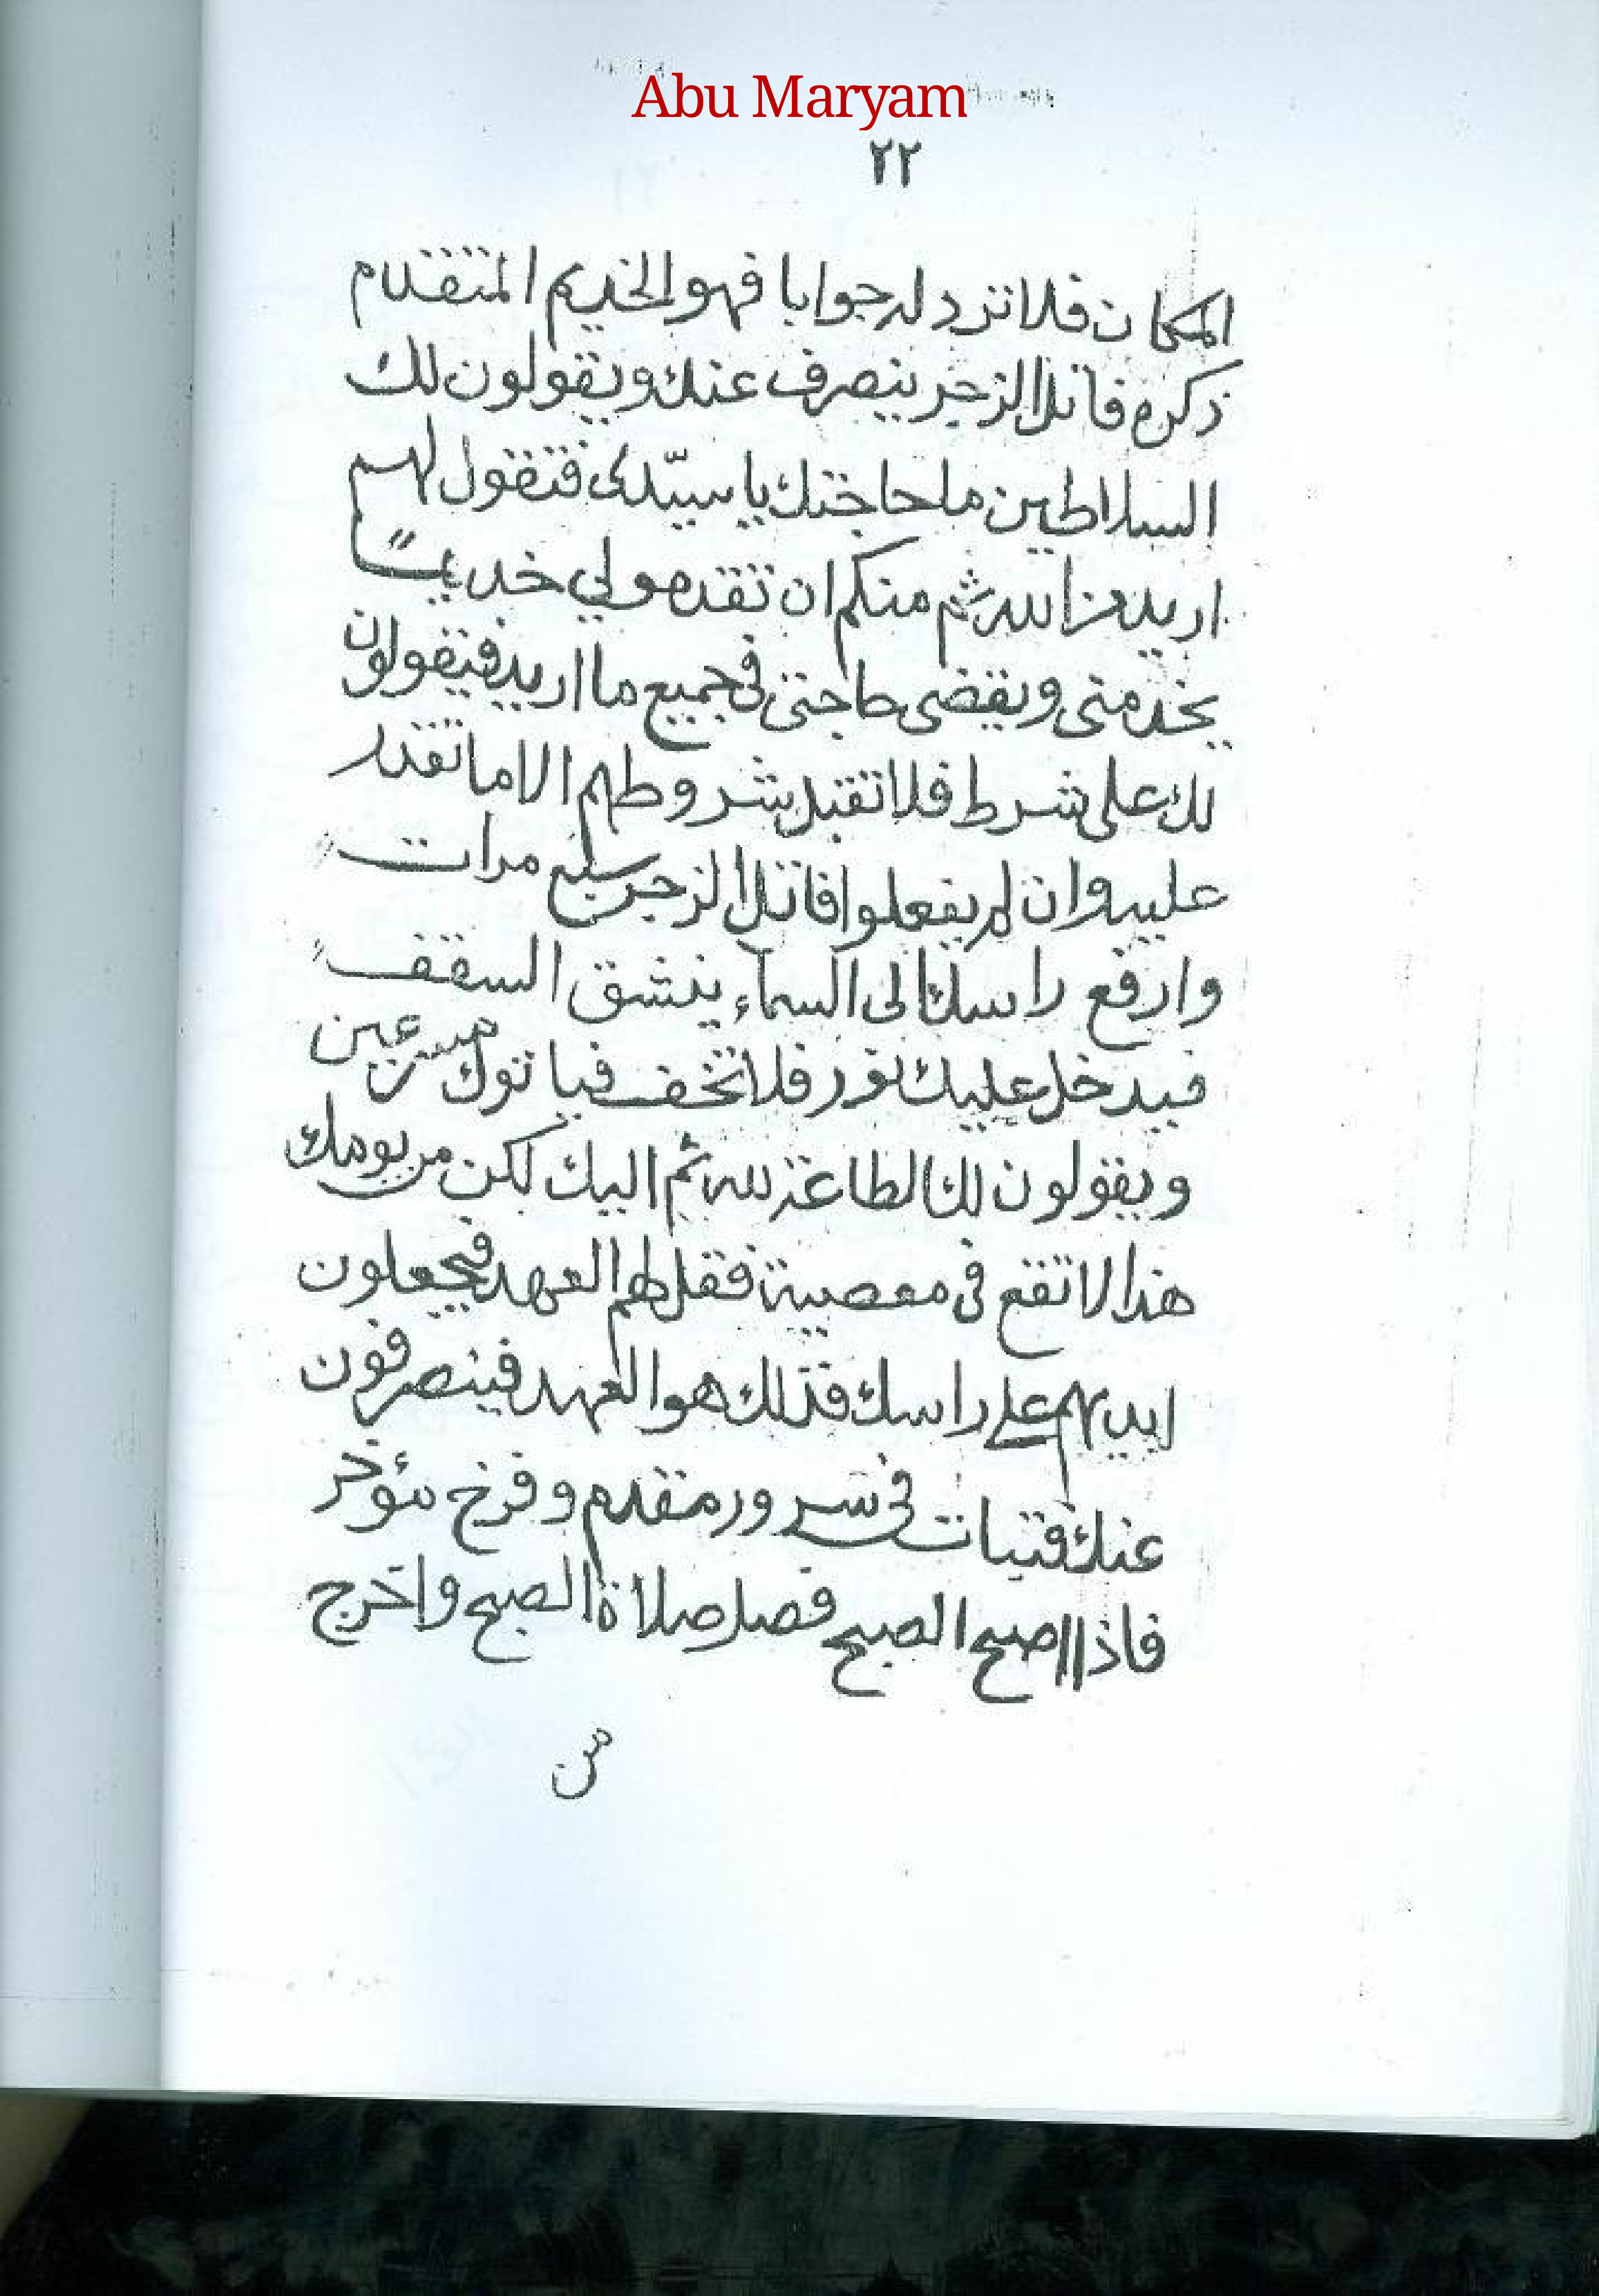 Abu Maryam
٢٢
المكان فلا تزد له جوابا فهو الخديم المتقدم
ذكره فاتل الزجر ينصرف عنك ويقولون لك
السلاطين ما حاجتك يا سيّدى فتقول لهم
اريد من الله ثم منكم ان تقدمو لي خديمًا
يخدمنى ويقضى حاجتى فى جميع ما اريد فيقولون
لك على شرط فلا تقبل شروطهم الا ما تقدر
عليه وان لم يفعلوا فاتل الزجر سبع مرات
وارفع راسك الى السماء ينشق السقف
فيدخل عليك نور فلا تخف فياتوك مسرعين
ويقولون لك الطاعة لله ثم اليك لكن من يومك
هذا لا تقع فى معصية فقل لهم العهد فيجعلون
ايديهم على راسك فذلك هو العهد فينصرفون
عنك فتبات فى سرور مقدم وفرح مؤخر
فاذا اصبح الصبح فصل صلاة الصبح واخرج
من